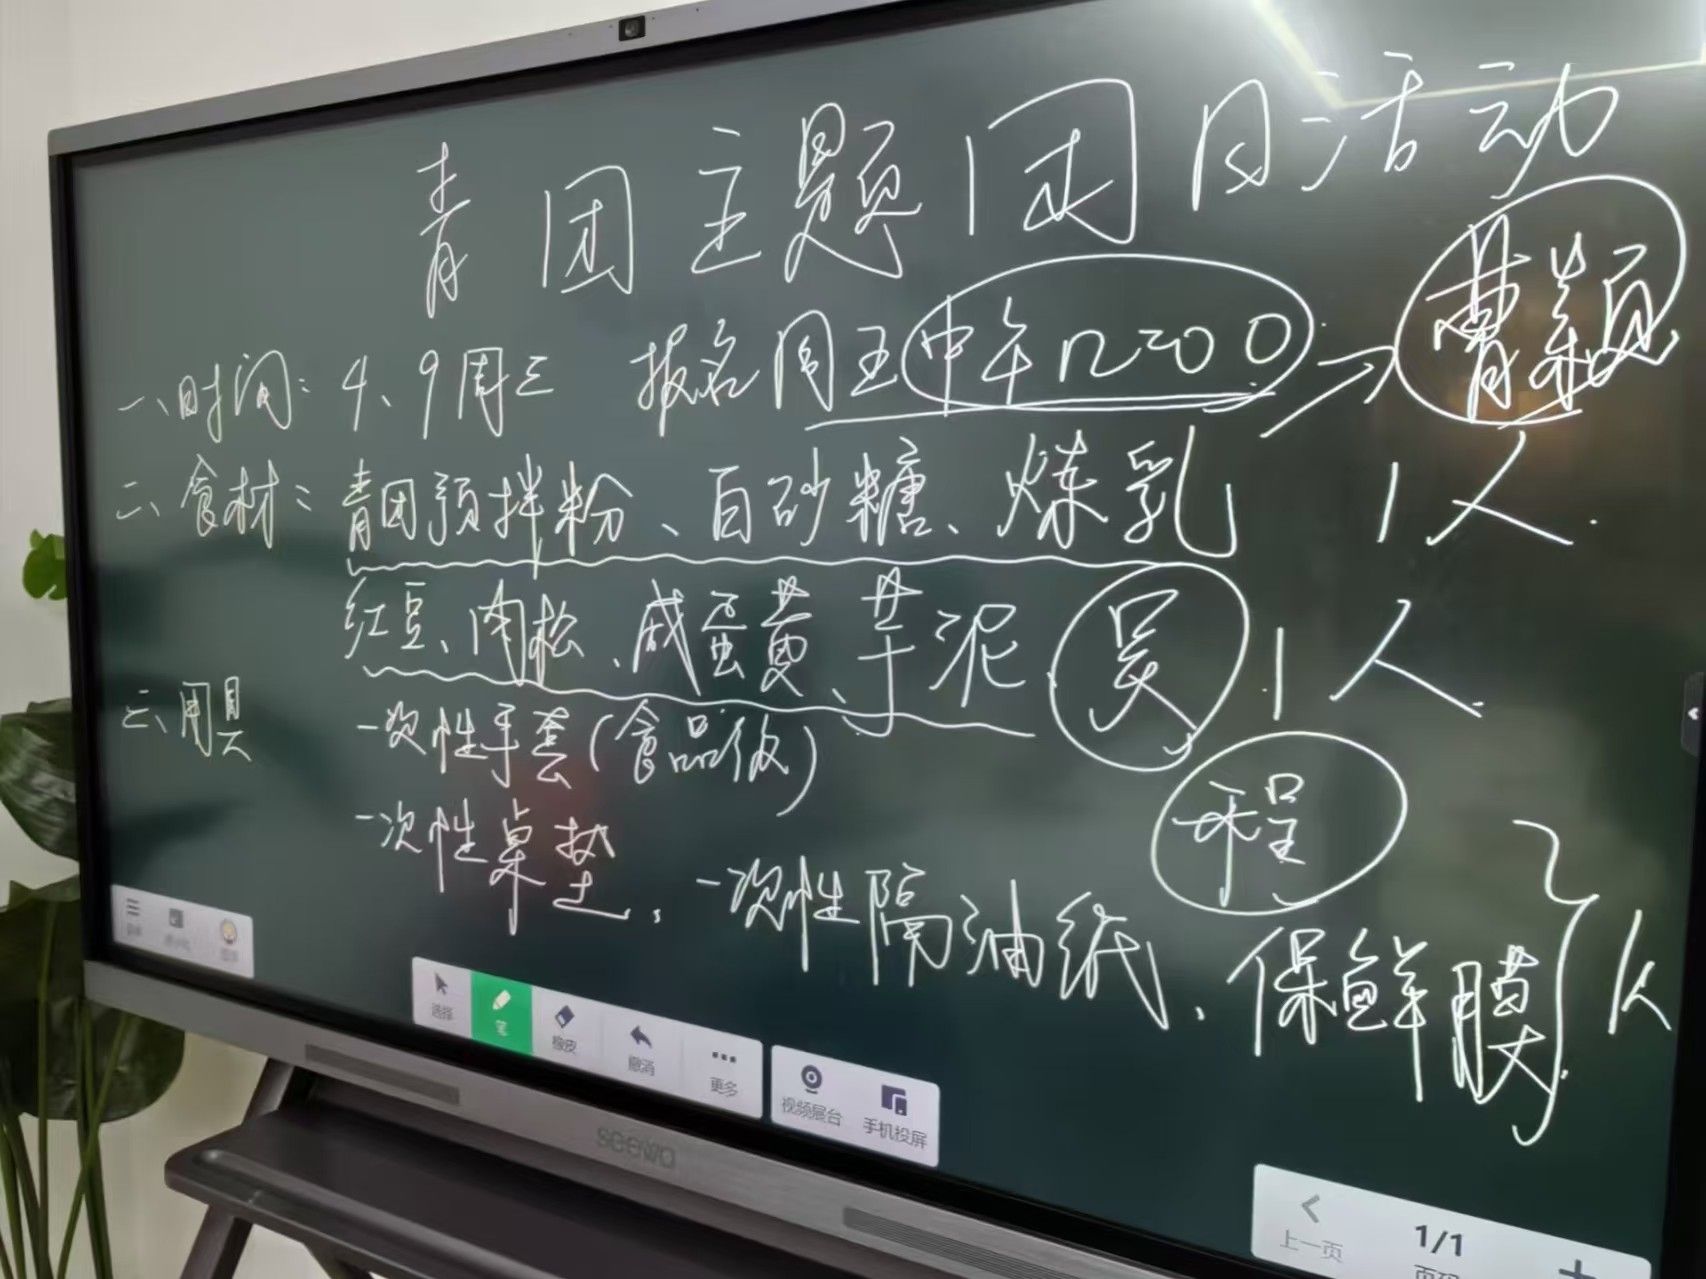 青团主题团日活动
一、时间: 4、9周三 报名周五中午12:00 → 曹颖
1人.
二、食材: 青团预拌粉、白砂糖、炼乳
红豆、肉松、咸蛋黄、芋泥 吴 1人.
三、用具 一次性手套(食品级)
程
一次性桌垫、一次性隔油纸、保鲜膜 2人
选择
笔
橡皮
撤消
更多
视频展台
手机投屏
seewo
上一页
1/1
页码